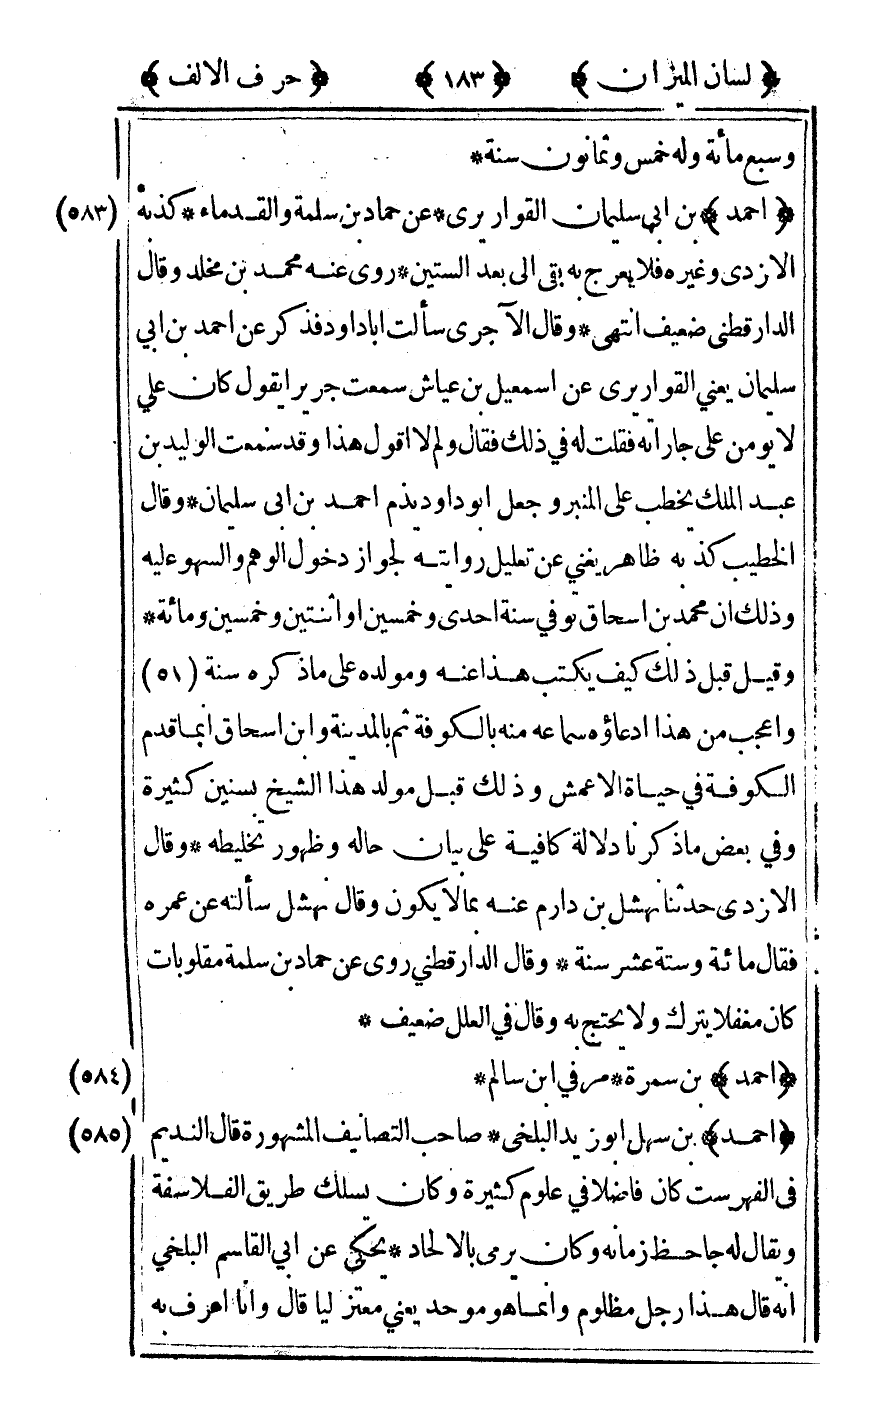 ﴿ لسان الميزان ﴾ ﴿ ١٨٣ ﴾ ﴿ حرف الالف ﴾
وسبع مائة وله خمس وثمانون سنة*
﴿ احمد ﴾ بن ابي سليمان القواريرى* عن حماد بن سلمة والقدماء* كذبه (٥٨٣)
الازدى وغيره فلا يعرج به بقى الى بعد الستين* روى عنه محمد بن مخلد وقال
الدارقطني ضعيف انتهى* وقال الآجرى سألت اباداود فذكر عن احمد بن ابي
سليمان يعني القواريرى عن اسمعيل بن عياش سمعت جريرا يقول كان علي
لا يومن على جاراته فقلت له في ذلك فقال ولم لا اقول هذا وقد سمعت الوليد بن
عبد الملك يخطب على المنبر وجعل ابوداود يذم احمد بن ابى سليمان* وقال
الخطيب كذبه ظاهر يغني عن تعليل روايته لجواز دخول الوهم والسهو عليه
وذلك ان محمد بن اسحاق توفي سنة احدى وخمسين او اثنتين وخمسين ومائة*
وقيل قبل ذلك كيف يكتب هذا عنه ومولده على ماذكره سنة (٥١)
واعجب من هذا ادعاؤه سماعه منه بالكوفة ثم بالمدينة وابن اسحاق انما قدم
الكوفة في حياة الاعمش وذلك قبل مولد هذا الشيخ بسنين كثيرة
وفي بعض ماذكرنا دلالة كافية على بيان حاله وظهور تخليطه* وقال
الازدى حدثنا نهشل بن دارم عنه بمالا يكون وقال نهشل سألته عن عمره
فقال مائة وستة عشر سنة* وقال الدارقطني روى عن حماد بن سلمة مقلوبات
كان مغفلا يترك ولا يحتج به وقال في العلل ضعيف*
﴿ احمد ﴾ بن سمرة* مر في ابن سالم* (٥٨٤)
﴿ احمد ﴾ بن سهل ابوزيد البلخى* صاحب التصانيف المشهورة قال النديم (٥٨٥)
فى الفهرست كان فاضلا في علوم كثيرة وكان يسلك طريق الفلاسفة
ويقال له جاحظ زمانه وكان يرمى بالالحاد* يحكى عن ابي القاسم البلخي
انه قال هذا رجل مظلوم وانما هو موحد يعني معتزليا قال وانا اعرف به